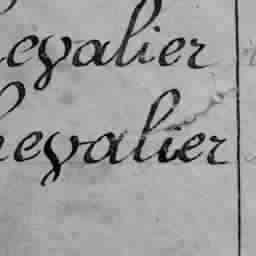 hevalier
hevalier